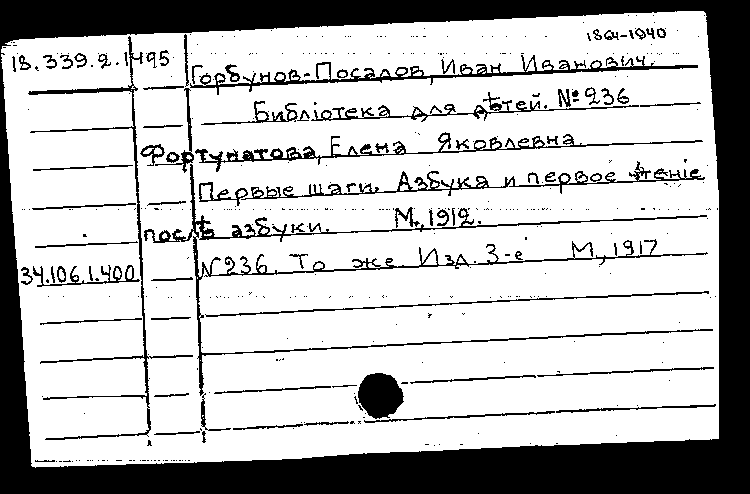 1864-1940
18.339.2.1495 Горбунов-Посадов, Иван Иванович.
Библіотека для дѣтей. № 236
Фортунатова, Елена Яковлевна.
Первые шаги. Азбука и первое чтеніе
послѣ азбуки. М., 1912.
34.106.1.400 №236. То же Изд. 3-е М., 1917